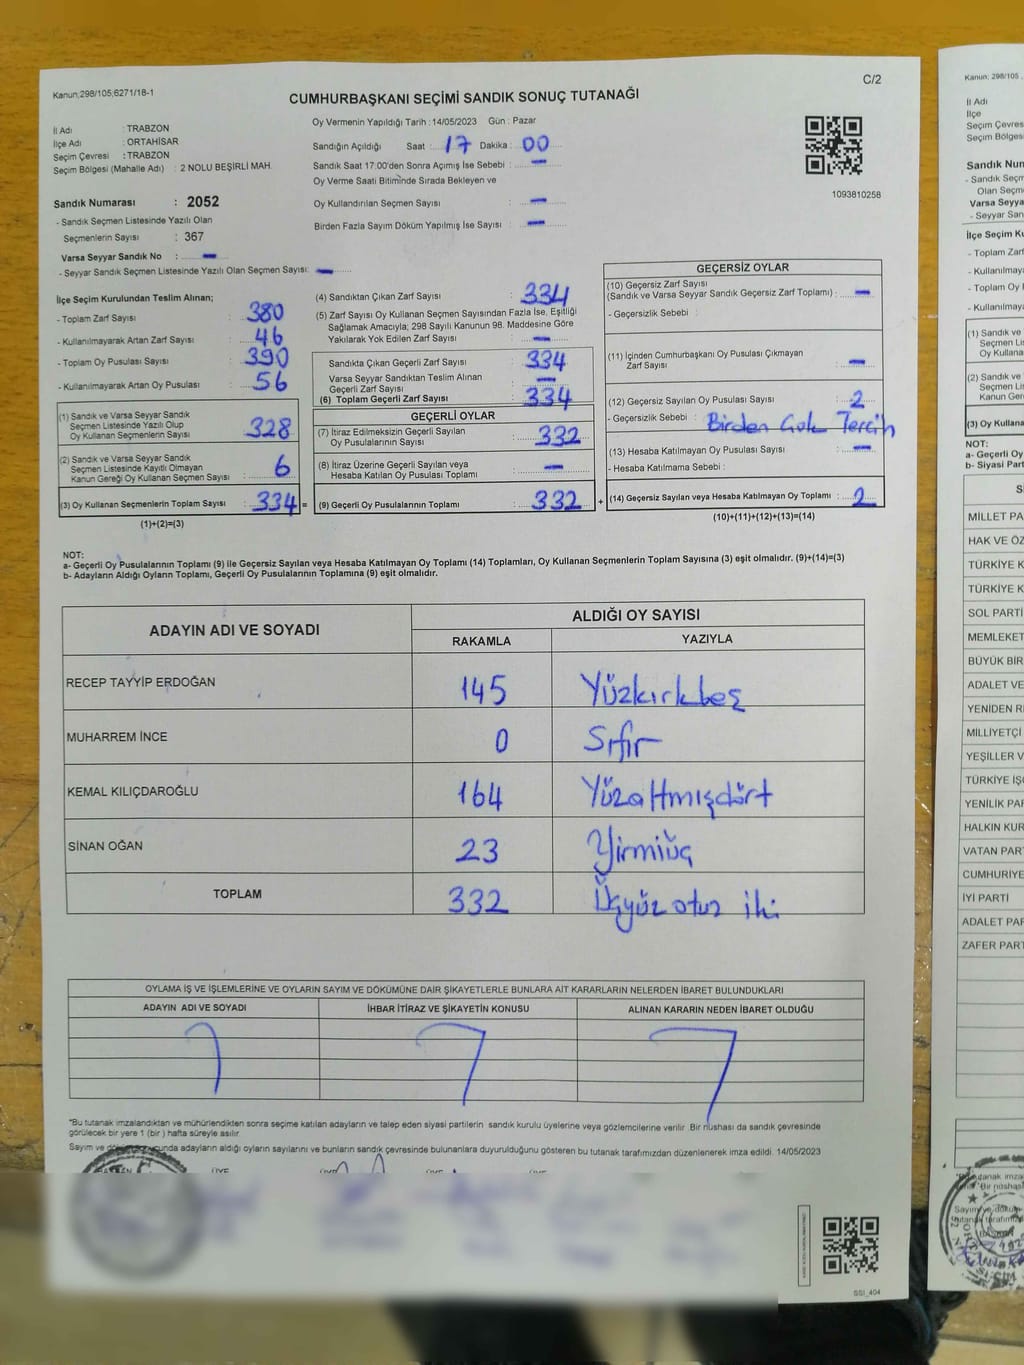 C/2
Kanun;298/105;6271/18-1
CUMHURBAŞKANI SEÇİMİ SANDIK SONUÇ TUTANAĞI
İl Adı : TRABZON
İlçe Adı : ORTAHİSAR
Seçim Çevresi : TRABZON
Seçim Bölgesi (Mahalle Adı) : 2 NOLU BEŞİRLİ MAH.
Oy Vermenin Yapıldığı Tarih :14/05/2023 Gün : Pazar
Sandığın Açıldığı Saat : 17 Dakika : 00
Sandık Saat 17:00'den Sonra Açımış İse Sebebi : —
Oy Verme Saati Bitiminde Sırada Bekleyen ve
Oy Kullandırılan Seçmen Sayısı : —
Birden Fazla Sayım Döküm Yapılmış İse Sayısı : —
1093810258
Sandık Numarası : 2052
- Sandık Seçmen Listesinde Yazılı Olan
Seçmenlerin Sayısı : 367
Varsa Seyyar Sandık No : —
- Seyyar Sandık Seçmen Listesinde Yazılı Olan Seçmen Sayısı: —
İlçe Seçim Kurulundan Teslim Alınan;
- Toplam Zarf Sayısı : 380
- Kullanılmayarak Artan Zarf Sayısı : 46
- Toplam Oy Pusulası Sayısı : 390
- Kullanılmayarak Artan Oy Pusulası : 56
(1) Sandık ve Varsa Seyyar Sandık
Seçmen Listesinde Yazılı Olup
Oy Kullanan Seçmenlerin Sayısı : 328
(2) Sandık ve Varsa Seyyar Sandık
Seçmen Listesinde Kayıtlı Olmayan
Kanun Gereği Oy Kullanan Seçmen Sayısı : 6
(3) Oy Kullanan Seçmenlerin Toplam Sayısı : 334 =
(1)+(2)=(3)
(4) Sandıktan Çıkan Zarf Sayısı : 334
(5) Zarf Sayısı Oy Kullanan Seçmen Sayısından Fazla İse, Eşitliği
Sağlamak Amacıyla; 298 Sayılı Kanunun 98. Maddesine Göre
Yakılarak Yok Edilen Zarf Sayısı : —
Sandıkta Çıkan Geçerli Zarf Sayısı : 334
Varsa Seyyar Sandıktan Teslim Alınan
Geçerli Zarf Sayısı : —
(6) Toplam Geçerli Zarf Sayısı : 334
GEÇERLİ OYLAR
(7) İtiraz Edilmeksizin Geçerli Sayılan
Oy Pusulalarının Sayısı : 332
(8) İtiraz Üzerine Geçerli Sayılan veya
Hesaba Katılan Oy Pusulası Toplamı : —
(9) Geçerli Oy Pusulalarının Toplamı : 332 +
GEÇERSİZ OYLAR
(10) Geçersiz Zarf Sayısı
(Sandık ve Varsa Seyyar Sandık Geçersiz Zarf Toplamı) : —
- Geçersizlik Sebebi :
(11) İçinden Cumhurbaşkanı Oy Pusulası Çıkmayan
Zarf Sayısı : —
(12) Geçersiz Sayılan Oy Pusulası Sayısı : 2
- Geçersizlik Sebebi : Birden Çok Tercih
(13) Hesaba Katılmayan Oy Pusulası Sayısı : —
- Hesaba Katılmama Sebebi :
(14) Geçersiz Sayılan veya Hesaba Katılmayan Oy Toplamı : 2
(10)+(11)+(12)+(13)=(14)
NOT:
a- Geçerli Oy Pusulalarının Toplamı (9) ile Geçersiz Sayılan veya Hesaba Katılmayan Oy Toplamı (14) Toplamları, Oy Kullanan Seçmenlerin Toplam Sayısına (3) eşit olmalıdır. (9)+(14)=(3)
b- Adayların Aldığı Oyların Toplamı, Geçerli Oy Pusulalarının Toplamına (9) eşit olmalıdır.
ADAYIN ADI VE SOYADI ALDIĞI OY SAYISI
RAKAMLA YAZIYLA
RECEP TAYYİP ERDOĞAN 145 Yüzkırkbeş
MUHARREM İNCE 0 Sıfır
KEMAL KILIÇDAROĞLU 164 Yüzaltmışdört
SİNAN OĞAN 23 Yirmiüç
TOPLAM 332 Üçyüz otuz iki
OYLAMA İŞ VE İŞLEMLERİNE VE OYLARIN SAYIM VE DÖKÜMÜNE DAİR ŞİKAYETLERLE BUNLARA AİT KARARLARIN NELERDEN İBARET BULUNDUKLARI
ADAYIN ADI VE SOYADI İHBAR İTİRAZ VE ŞİKAYETİN KONUSU ALINAN KARARIN NEDEN İBARET OLDUĞU
"Bu tutanak imzalandıktan ve mühürlendikten sonra seçime katılan adayların ve talep eden siyasi partilerin sandık kurulu üyelerine veya gözlemcilerine verilir. Bir nüshası da sandık çevresinde
görülecek bir yere 1 (bir) hafta süreyle asılır.
Sayım ve dökümü sonucunda adayların aldığı oyların sayılarını ve bunların sandık çevresinde bulunanlara duyurulduğunu gösteren bu tutanak tarafımızdan düzenlenerek imza edildi. 14/05/2023
SSI_404
Kanun; 298/105
İl Adı
İlçe
Seçim Çevres
Seçim Bölges
Sandık Num
- Sandık Seçm
Olan Seçme
Varsa Seyya
- Seyyar San
İlçe Seçim Ku
- Toplam Zarf
- Kullanılmaya
- Toplam Oy
- Kullanılmaya
(1) Sandık ve
Seçmen Lis
Oy Kullana
(2) Sandık ve
Seçmen Lis
Kanun Gere
(3) Oy Kullana
NOT:
a- Geçerli Oy
b- Siyasi Part
MİLLET PA
HAK VE ÖZ
TÜRKİYE K
TÜRKİYE K
SOL PARTİ
MEMLEKET
BÜYÜK BİR
ADALET VE
YENİDEN RE
MİLLİYETÇİ
YEŞİLLER V
TÜRKİYE İŞÇ
YENİLİK PAR
HALKIN KUR
VATAN PART
CUMHURİYE
İYİ PARTİ
ADALET PAR
ZAFER PART